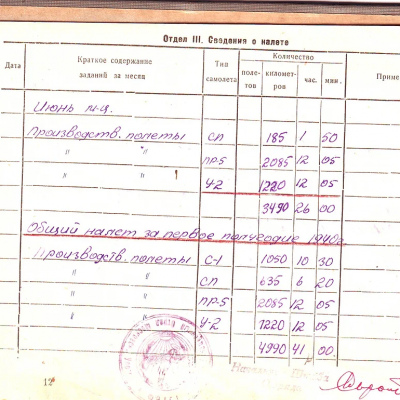 Отдел III. Сведения о налете
Дата
Краткое содержание заданий за месяц
Тип самолета
Количество
поле-тов
километ-ров
час.
мин.
Приме
Июнь м-ц.
Производств. полеты СП 185 1 50
" " ПР-5 2085 12 05
" " У-2 1220 12 05
3490 26 00
Общий налет за первое полугодие 1940г.
Производств. полеты С-1 1050 10 30
" " СП 635 6 20
" " ПР-5 2085 12 05
" " У-2 1220 12 05
4990 41 00.
12